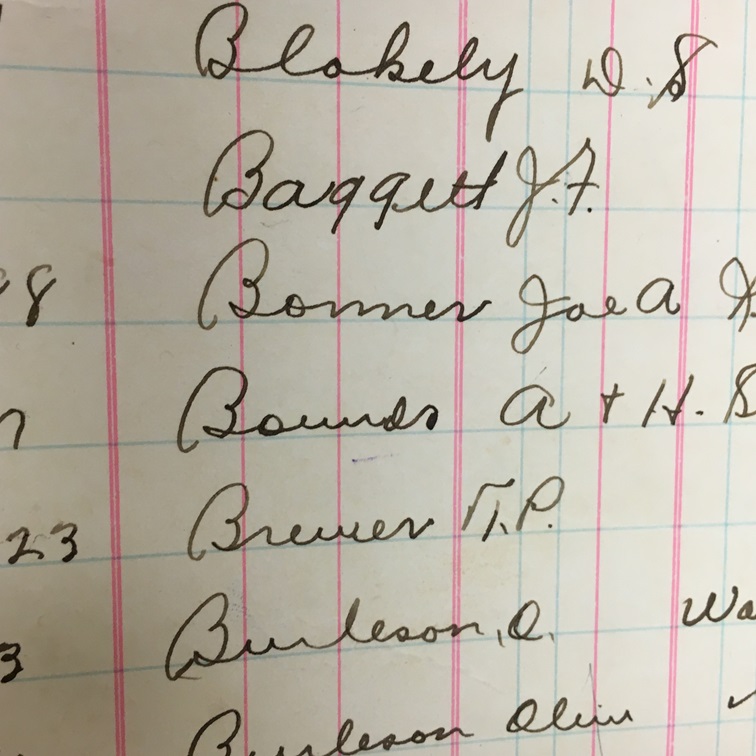 Blakely D.S
Baggett J.F.
8 Bonner Joe A
7 Bounds A + H. S
23 Brewer T.P.
3 Burleson, O. Wa
Burleson Olin